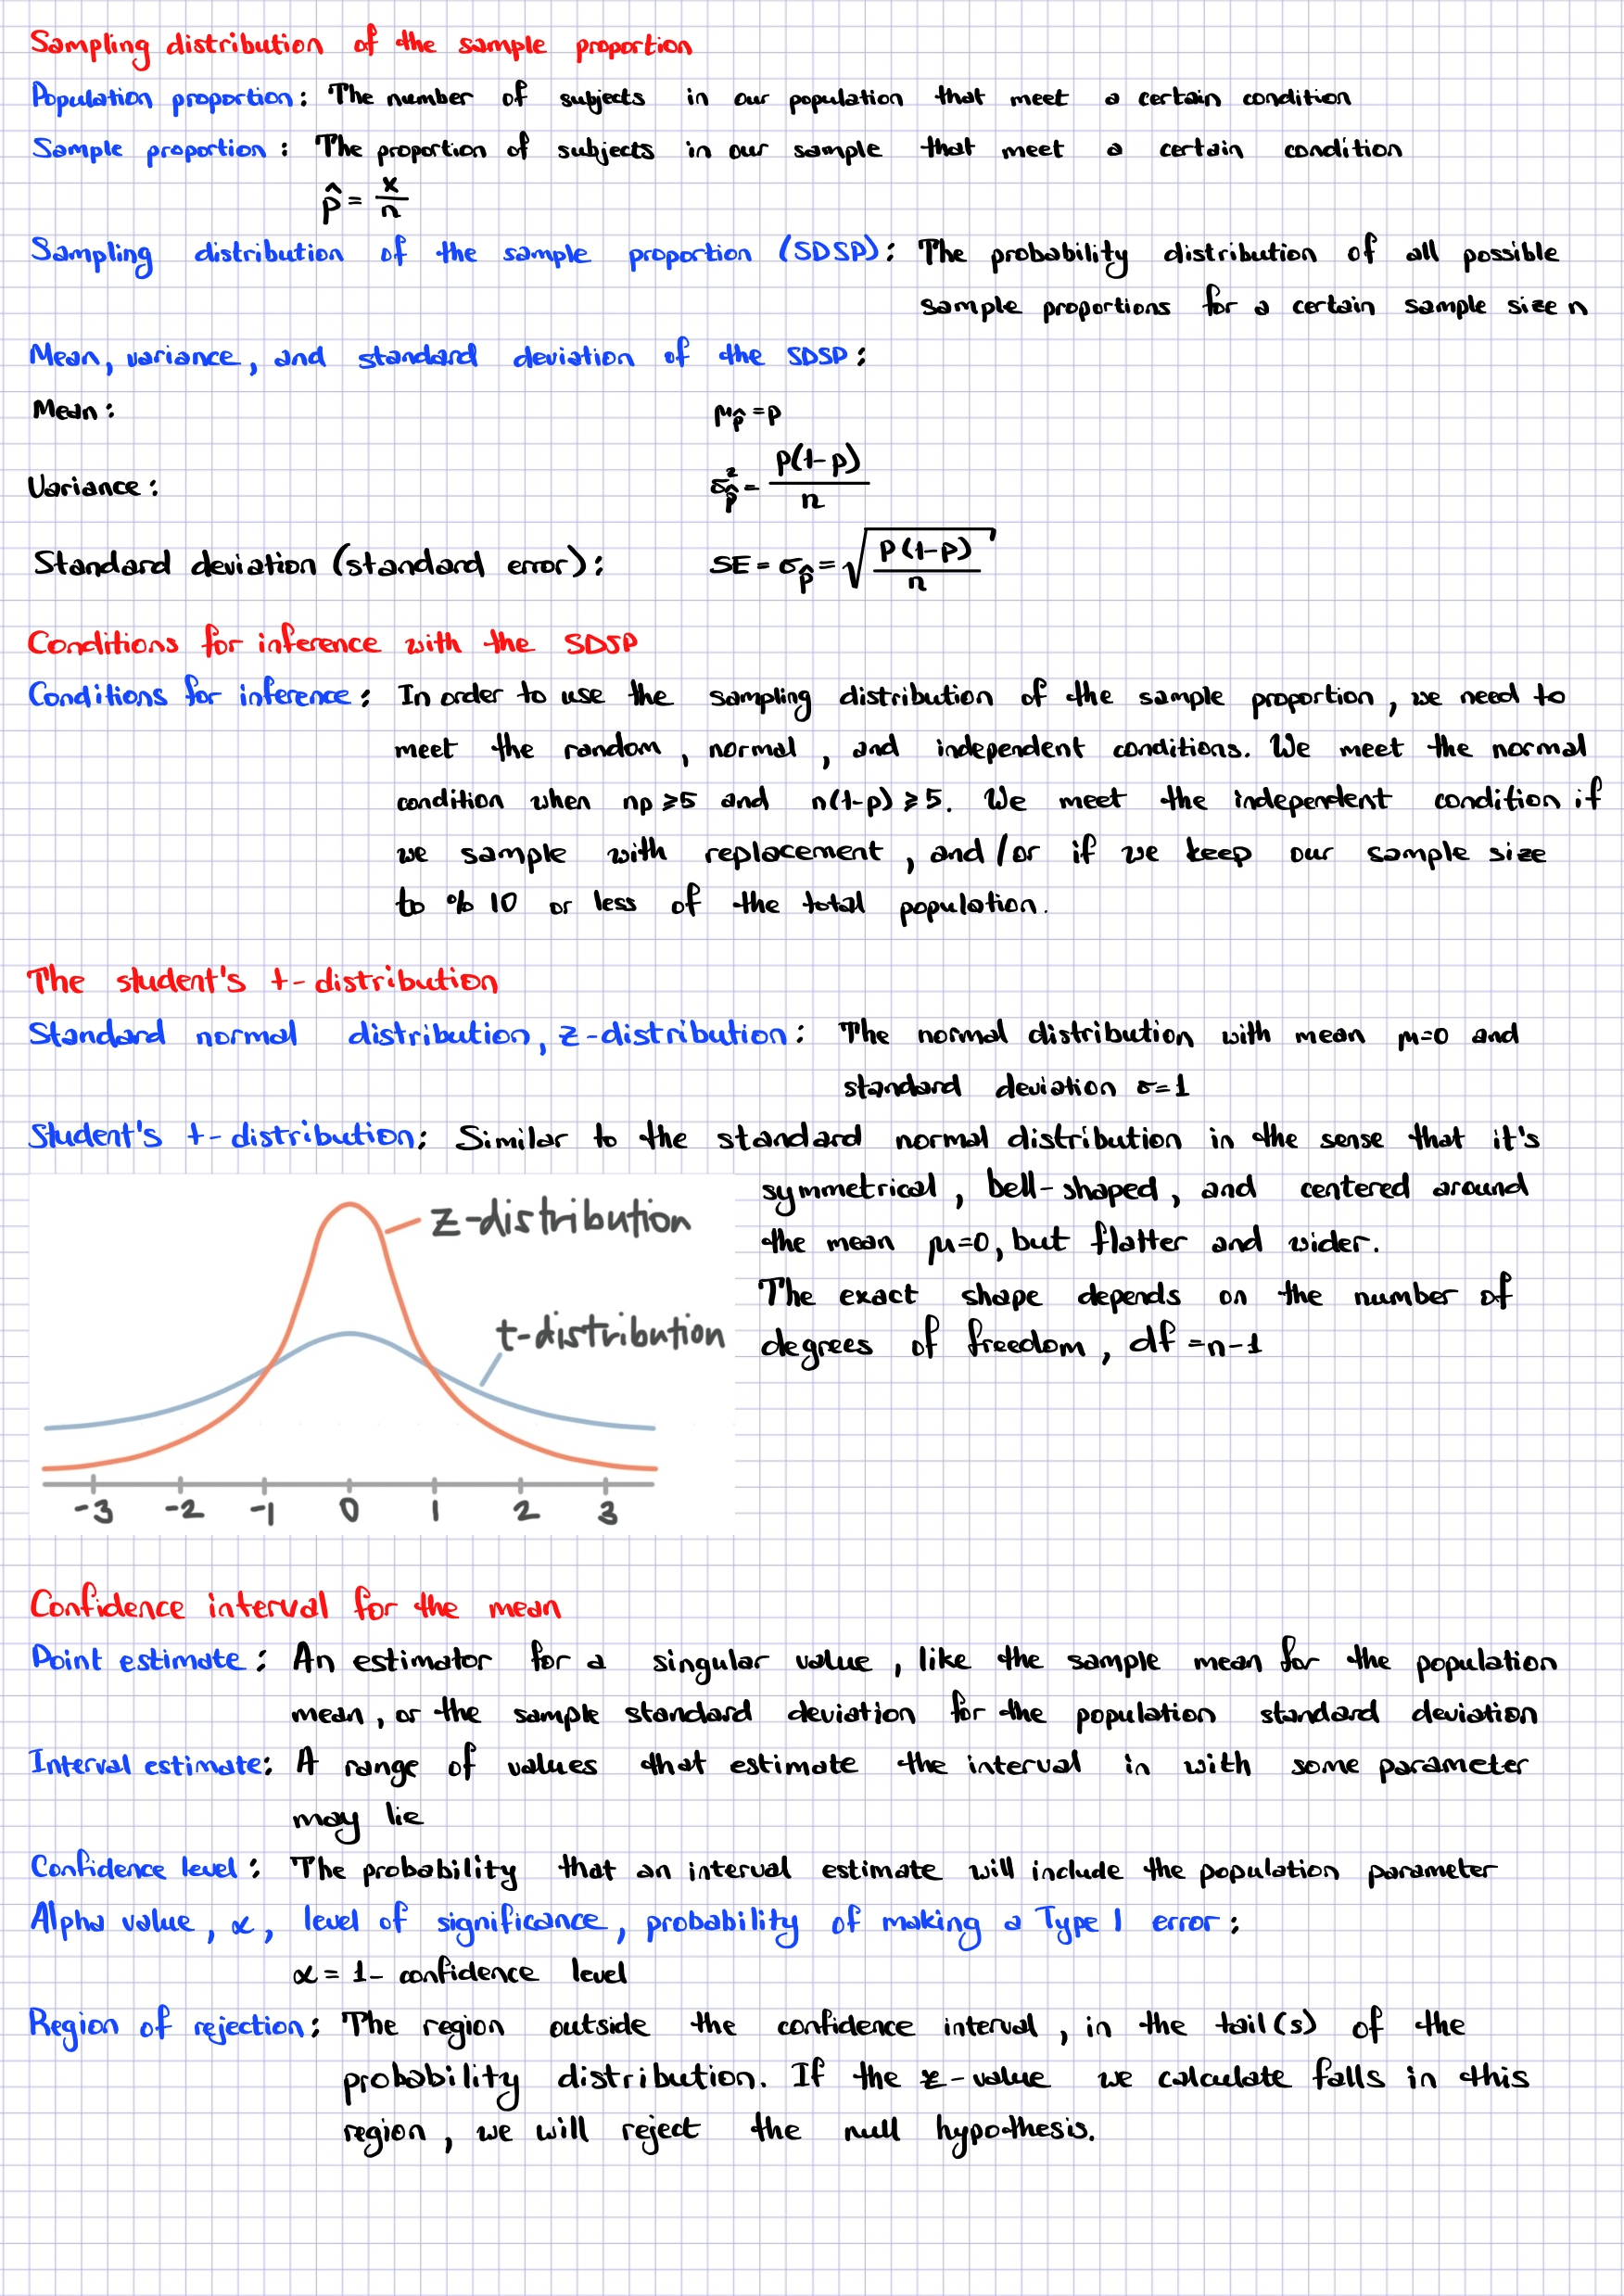 Sampling distribution of the sample proportion
Population proportion: The number of subjects in our population that meet a certain condition
Sample proportion: The proportion of subjects in our sample that meet a certain condition
p̂ = x/n
Sampling distribution of the sample proportion (SDSP): The probability distribution of all possible
sample proportions for a certain sample size n
Mean, variance, and standard deviation of the SDSP:
Mean: μp̂ = p
Variance: σ²p̂ = p(1-p)/n
Standard deviation (standard error): SE = σp̂ = √(p(1-p)/n)
Conditions for inference with the SDSP
Conditions for inference: In order to use the sampling distribution of the sample proportion, we need to
meet the random, normal, and independent conditions. We meet the normal
condition when np ≥ 5 and n(1-p) ≥ 5. We meet the independent condition if
we sample with replacement, and/or if we keep our sample size
to %10 or less of the total population.
The student's t-distribution
Standard normal distribution, z-distribution: The normal distribution with mean μ=0 and
standard deviation σ=1
Student's t-distribution: Similar to the standard normal distribution in the sense that it's
symmetrical, bell-shaped, and centered around
the mean μ=0, but flatter and wider.
The exact shape depends on the number of
degrees of freedom, df = n-1
z-distribution
t-distribution
-3 -2 -1 0 1 2 3
Confidence interval for the mean
Point estimate: An estimator for a singular value, like the sample mean for the population
mean, or the sample standard deviation for the population standard deviation
Interval estimate: A range of values that estimate the interval in with some parameter
may lie
Confidence level: The probability that an interval estimate will include the population parameter
Alpha value, α, level of significance, probability of making a Type I error:
α = 1 - confidence level
Region of rejection: The region outside the confidence interval, in the tail(s) of the
probability distribution. If the z-value we calculate falls in this
region, we will reject the null hypothesis.